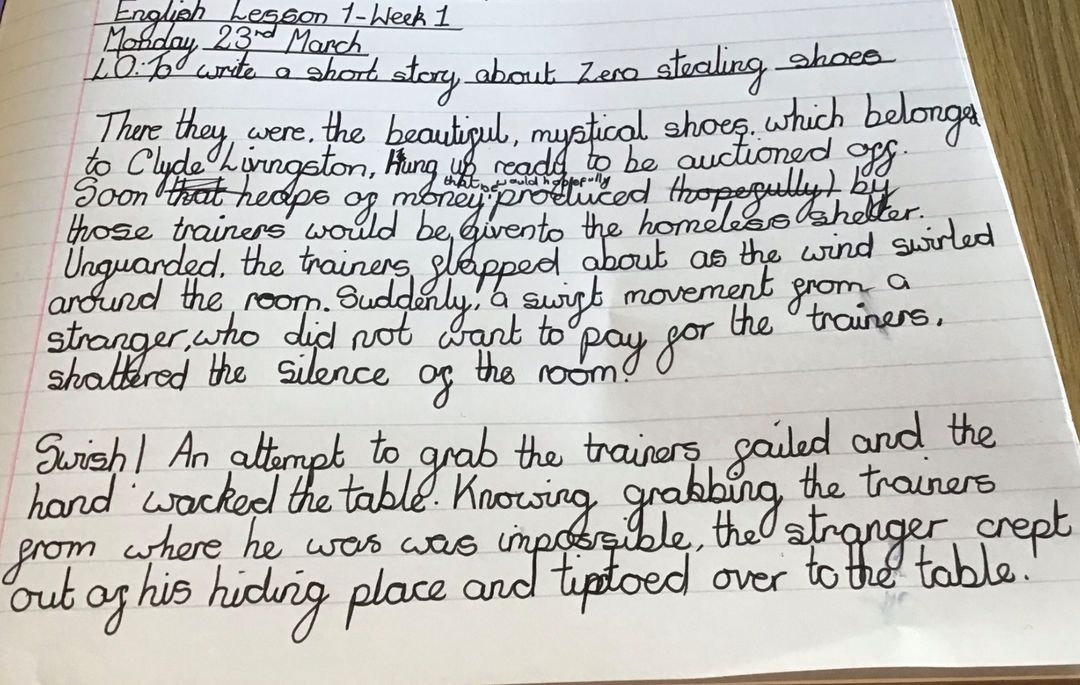 English Lesson 1-Week 1
Monday 23rd March
LO: To write a short story about Zero stealing shoes
There they were, the beautiful, mystical shoes, which belonged
to Clyde Livingston, Hung up ready to be auctioned off.
that would hopefully be
Soon that heaps of money produced (hopefully) by
those trainers would be given to the homeless shelter.
Unguarded, the trainers flapped about as the wind swirled
around the room. Suddenly, a swift movement from a
stranger, who did not want to pay for the trainers,
shattered the silence of the room.
Swish! An attempt to grab the trainers failed and the
hand wacked the table. Knowing grabbing the trainers
from where he was was impossible, the stranger crept
out of his hiding place and tiptoed over to the table.